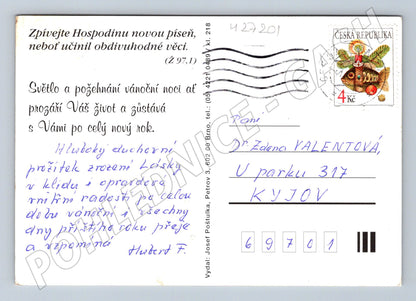 Zpívejte Hospodinu novou píseň,
neboť učinil obdivuhodné věci.
(Ž 97.1)
Světlo a požehnání vánoční noci ať
prozáří Váš život a zůstává
s Vámi po celý nový rok.
Hluboký duchovní
prožitek zrození Lásky
v klidu a opravdové
vnitřní radosti po celou
dobu vánoční i všechny
dny příštího roku přeje
a vzpomíná
Hubert F.
Vydal: Josef Poštulka, Petrov 3, 602 00 Brno, tel. (05) 4221 kl. 218
427201
ČESKÁ REPUBLIKA
4 Kč
Paní
Dr Zdena VALENTOVÁ,
U parku 317
KYJOV
69701
POHLEDNICE-GARH